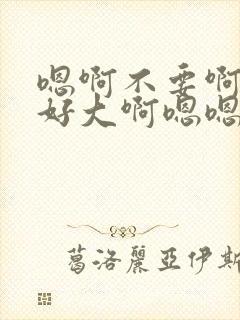 嗯啊不要啊
好大啊嗯嗯
葛洛麗亞伊斯